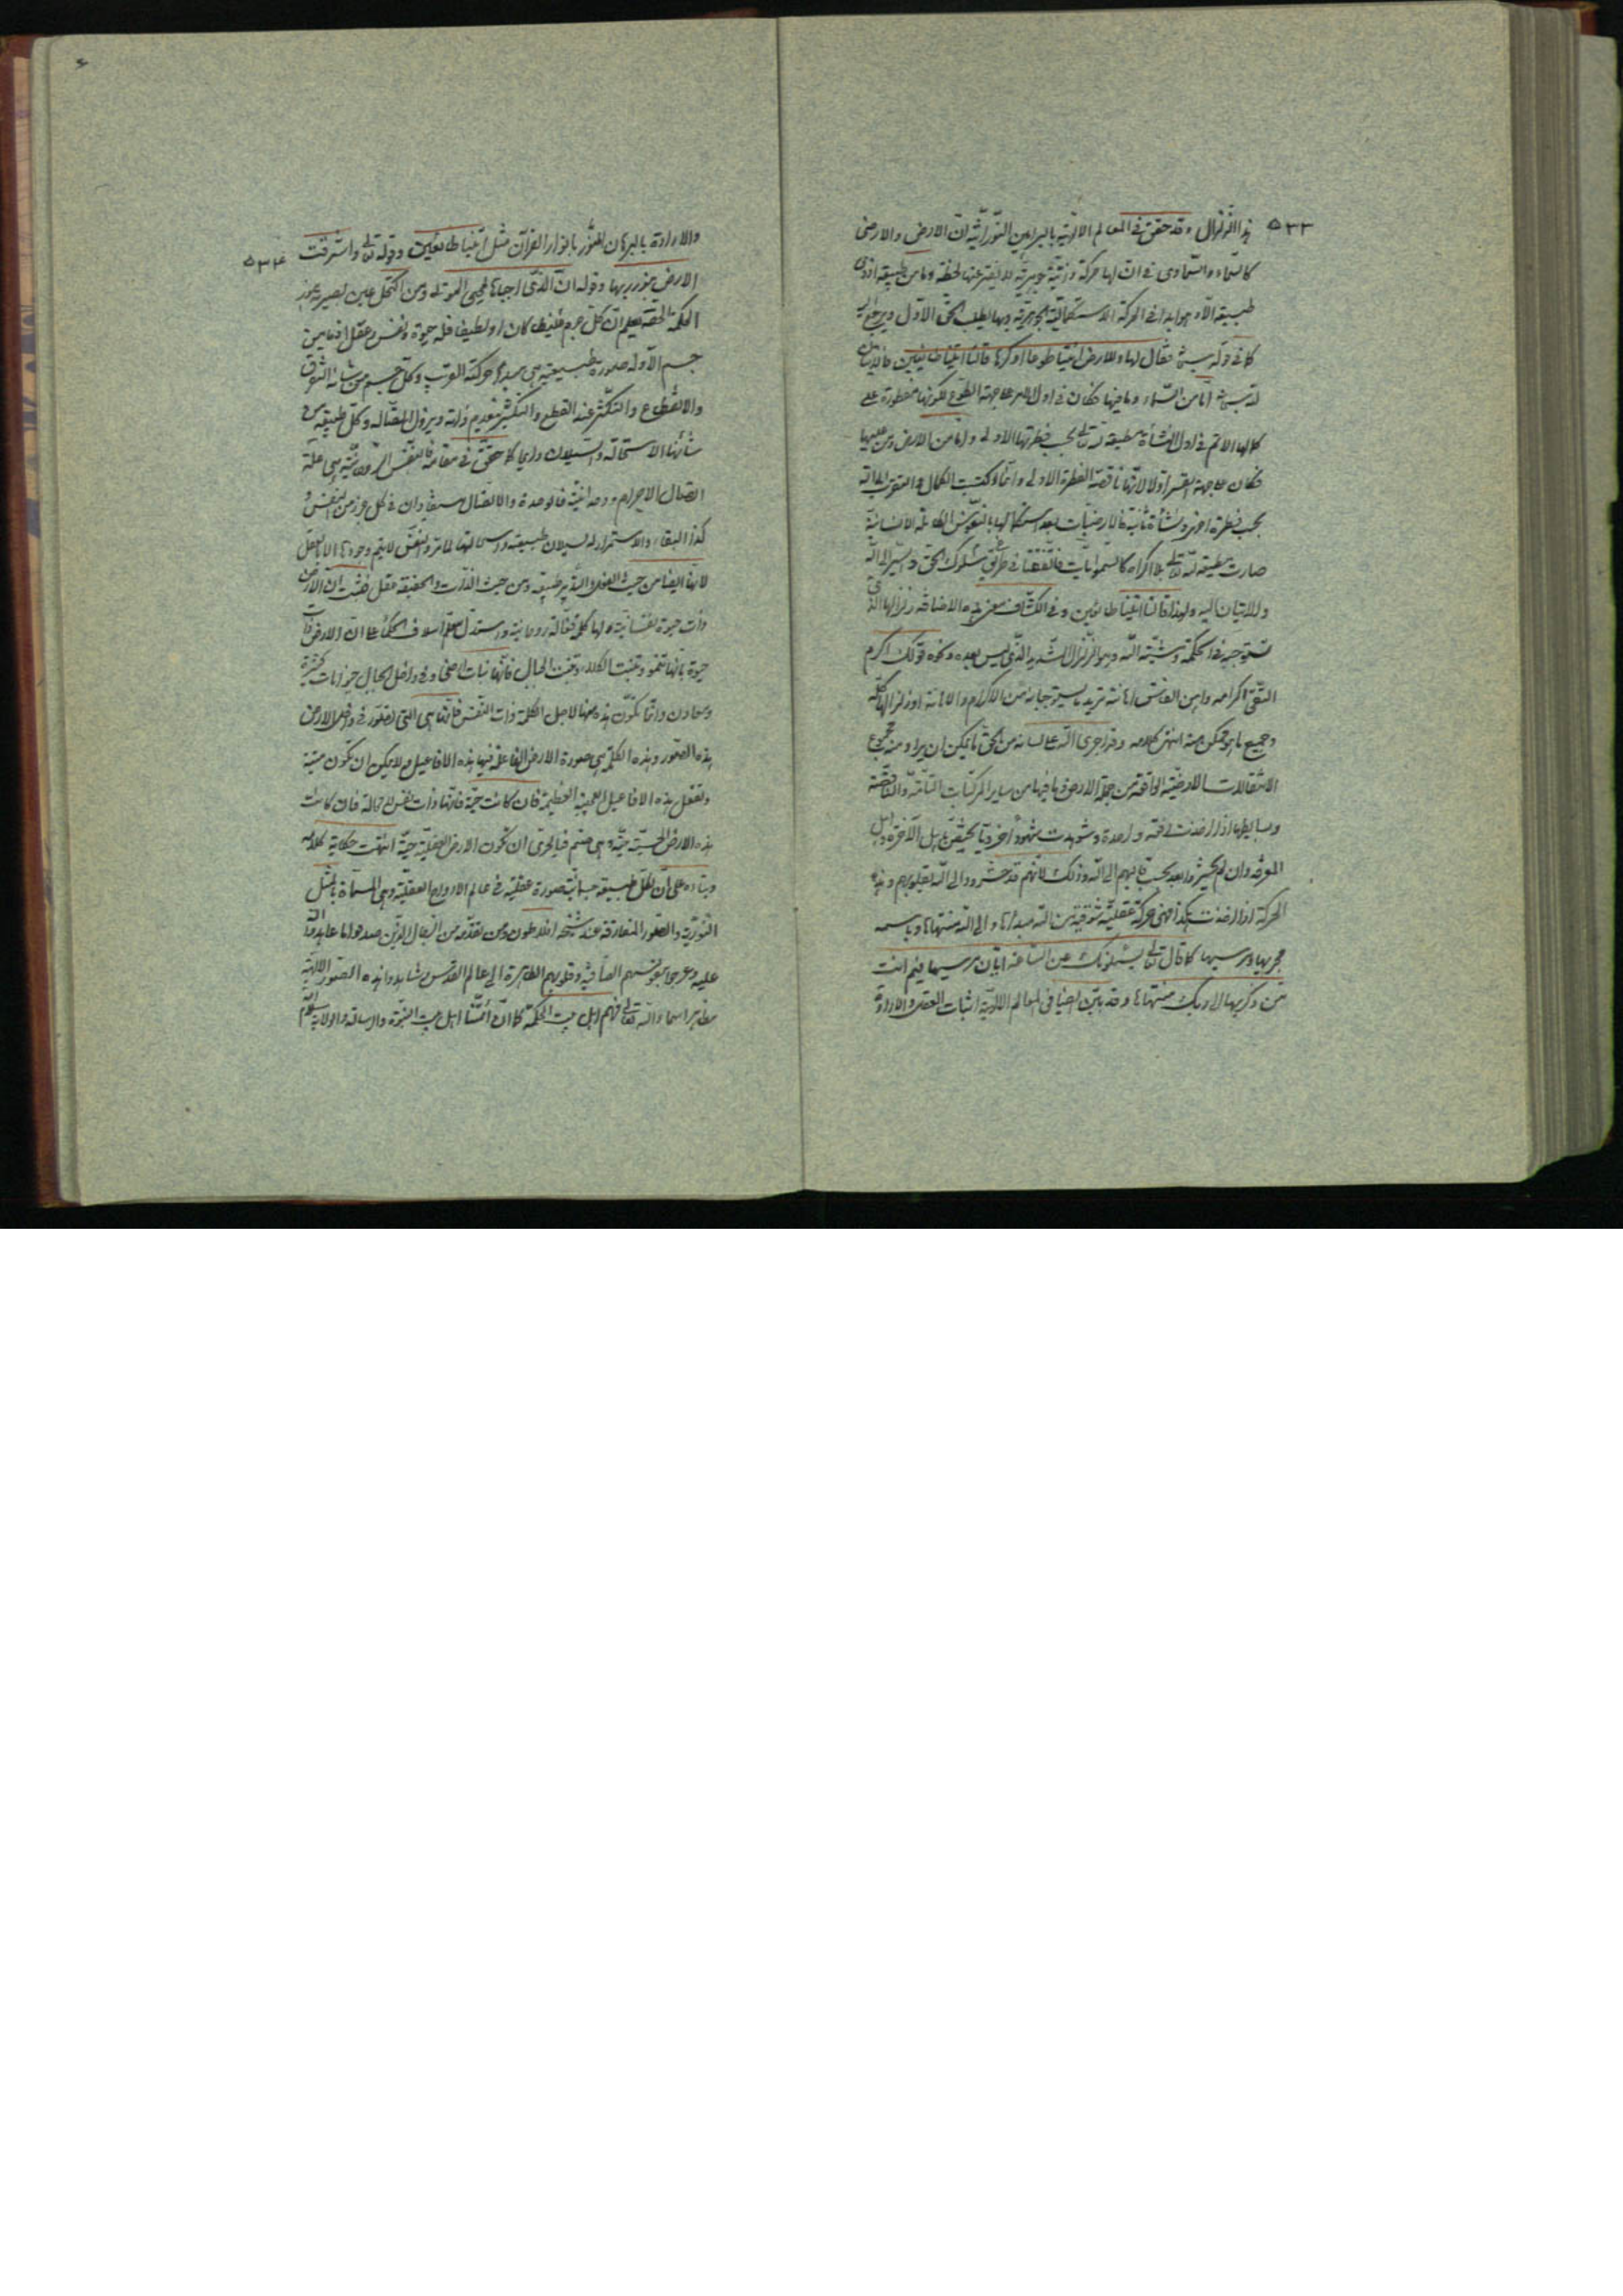 ۵۳۳
هذا الزلزال وقد حقق في المعالم الالهية بالبراهين النورانية ان الارض والارضى
كالسماء والسماوى في ان لها حركة ذاتية جوهرية لا يفتر عنها لحظة وما من طبيعة
طبيعة الا وهو ابدا في الحركة الاستكمالية الجوهرية وبها يطلب الحق الاول ويرجع اليه
كما في قوله سبحانه فقال لها وللارض ائتيا طوعا او كرها قالتا اتينا طائعين فالاتيان
له سبحانه اما من السماء وما فيها فكان في اول الامر على جهة الطوع لكونها مفطورة على
كمالها الاتم في اول النشأة مطيعة لله تعالى بحسب فطرتها الاولى واما من الارض ومن عليها
فكان على جهة القسر اولا لانها ناقصة الفطرة الاولى وانما اكتسب الكمال والتقرب الى الله
بحسب فطرة اخرى ونشأة ثانية فالارضيات بعد استكمالها بالنفوس الكاملة الانسانية
صارت مطيعة لله تعالى بلا اكراه كالسمويات فاتفقتا في طريق سلوك الحق والسير الى الله
والاتيان اليه ولهذا قالتا اتينا طائعين وفي الكشاف معنى هذه الاضافة زلزالها الذى
تستوجبه في الحكمة ومشية الله وهو الزلزال الشديد الذى ليس بعده ونحوه قولك اكرم
التقى اكرامه واهن الفاسق اهانته تريد ما يستوجبانه من الاكرام والاهانة او زلزالها كله
وجميع ما هو ممكن منه انتهى كلامه وقد اجرى الله على لسانه من الحق ما يمكن ان يراد منه مجموع
الانتقالات الارضية الواقعة من جملة الارض وما فيها من ساير المركبات التامة والناقصة
وبسايطها اذا اخذت دفعة واحدة وشوهدت شهودا اخرويا كحشرة اهل الآخرة واهل
المعرفة وان لم يحشروا بعد بحسب قالبهم الى الله وذلك لانهم قد حشروا الى الله بقلوبهم وهذه
الحركة اذا اخذت هكذا فهي حركة عقلية شوقية من الله مبدأها والى الله منتهاها وباسمه
مجريها ومرسيها كما قال تعالى يسئلونك عن الساعة ايان مرسيها فيم انت
من ذكريها الى ربك منتهاها وقد بين ايضا في المعالم الالهية اثبات العشق والارادة
۵۳۴
والارادة بالبرهان المنور بانوار القرآن مثل اتينا طائعين وقوله تعالى واشرقت
الارض بنور ربها وقوله ان الذى احياها لمحيى الموتى ومن اكتحل عين بصيرته بنور
الحكمة الحقة يعلم ان كل جرم غليظا كان او لطيفا فله حيوة ونفس وعقل اذ ما من
جسم الا وله صورة طبيعية هى مبدء حركته القريب وكل جسم من شانه التفرق
والانقطاع والتكثر عند القطع والتكثير ينعدم ذاته ويزول اتصاله وكل طبيعة من
شانها الاستحالة والسيلان دايما كما حقق في مقامه فالنفس الروحانية هى علة
اتصال الاجرام ووحدانيته فالوحدة والاتصال مستفادان في كل جرم من النفس و
كذا البقاء والاستمرار له لسيلان طبيعته واستحالتها لما مر والنفس لا يتم وجودها الا بالعقل
لانها ايضا من حيث الفعل والتدبير طبيعة ومن حيث الذات والحقيقة عقل فثبت ان الارض
ذات حيوة نفسانية ولها كلمة فعالة روحانية واستدل معلم اسلاف الحكماء على ان الارض ذات
حيوة بانها تنمو وتنبت الكلاء وتنبت الجبال فانها نبات ارضى وفي داخل الجبال حيوانات كثيرة
ومعادن وانما تكون هذه فيها لاجل الكلمة ذات النفس فانها هى التى تصور في داخل الارض
هذه الصور وهذه الكلمة هى صورة الارض الفاعلة فيها هذه الافاعيل ولا يمكن ان تكون ميتة
وتفعل هذه الافاعيل العجيبة العظيمة فان كانت حية فانها ذات نفس لا محالة فان كانت
هذه الارض الحسية حية وهى صنم فبالحرى ان تكون الارض العقلية حية انتهت حكاية كلامه
وبناءه على ان لكل طبيعة جسمانية صورة عقلية في عالم الارواح العقلية وهى المسماة بالمثل
النورية والصور المفارقة عند شيخه افلاطون ومن تقدمه من الرجال الذين صدقوا ما عاهدوا الله
عليه وعرجوا بنفوسهم الصافية وقلوبهم الطاهرة الى عالم القدس وشاهدوا هذه الصور الالهية
مظاهر اسماء الله تعالى فهم اهل بيت الحكمة كما ان أئمتنا اهل بيت النبوة والرسالة والولاية